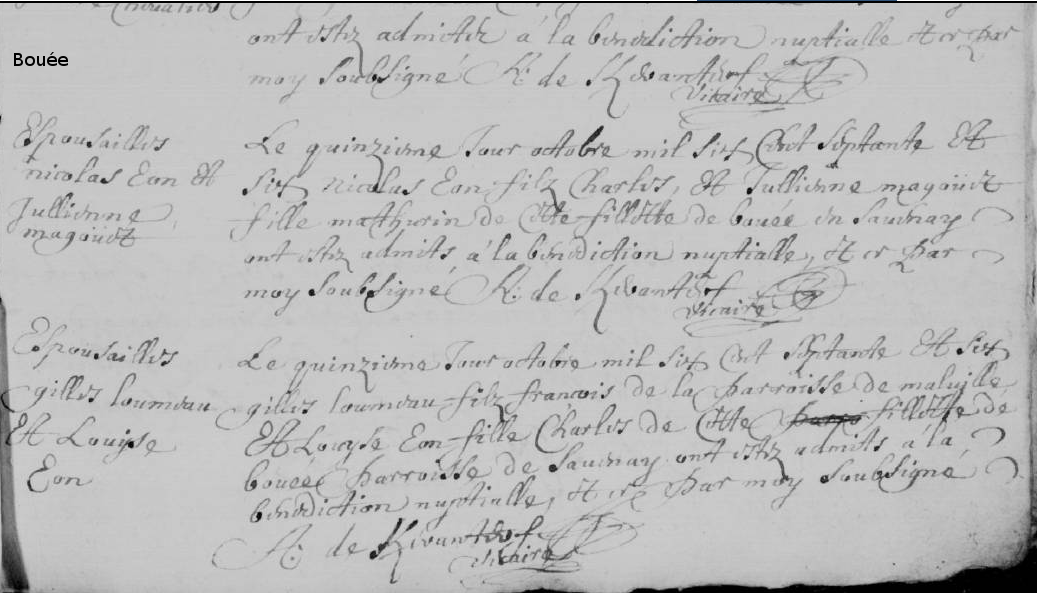 Bouée
ont estez admitez à la benediction nuptialle et ce par
moy soubsigné
Vicaire
Espousailles
nicolas Eon et
Jullienne
magoüet
Le quinziesme Jour octobre mil six Cent Septante Et
six nicolas Eon filz Charles, Et Jullienne magoüet
fille mathurin de Cette fillette de bouée en Sauenay
ont estez admits á la benediction nuptialle, et ce par
moy soubsigné
Vicaire
Espousailles
gilles loumeau
Et Louyse
Eon
Le quinziesme Jour octobre mil six Cent Septante Et six
gilles loumeau filz francois de la parroisse de maluille
Et Louyse Eon fille Charles de Cette fillette de
bouée parroisse de Sauenay ont estez admits a la
benediction nuptialle, et ce par moy soubsigné
Vicaire